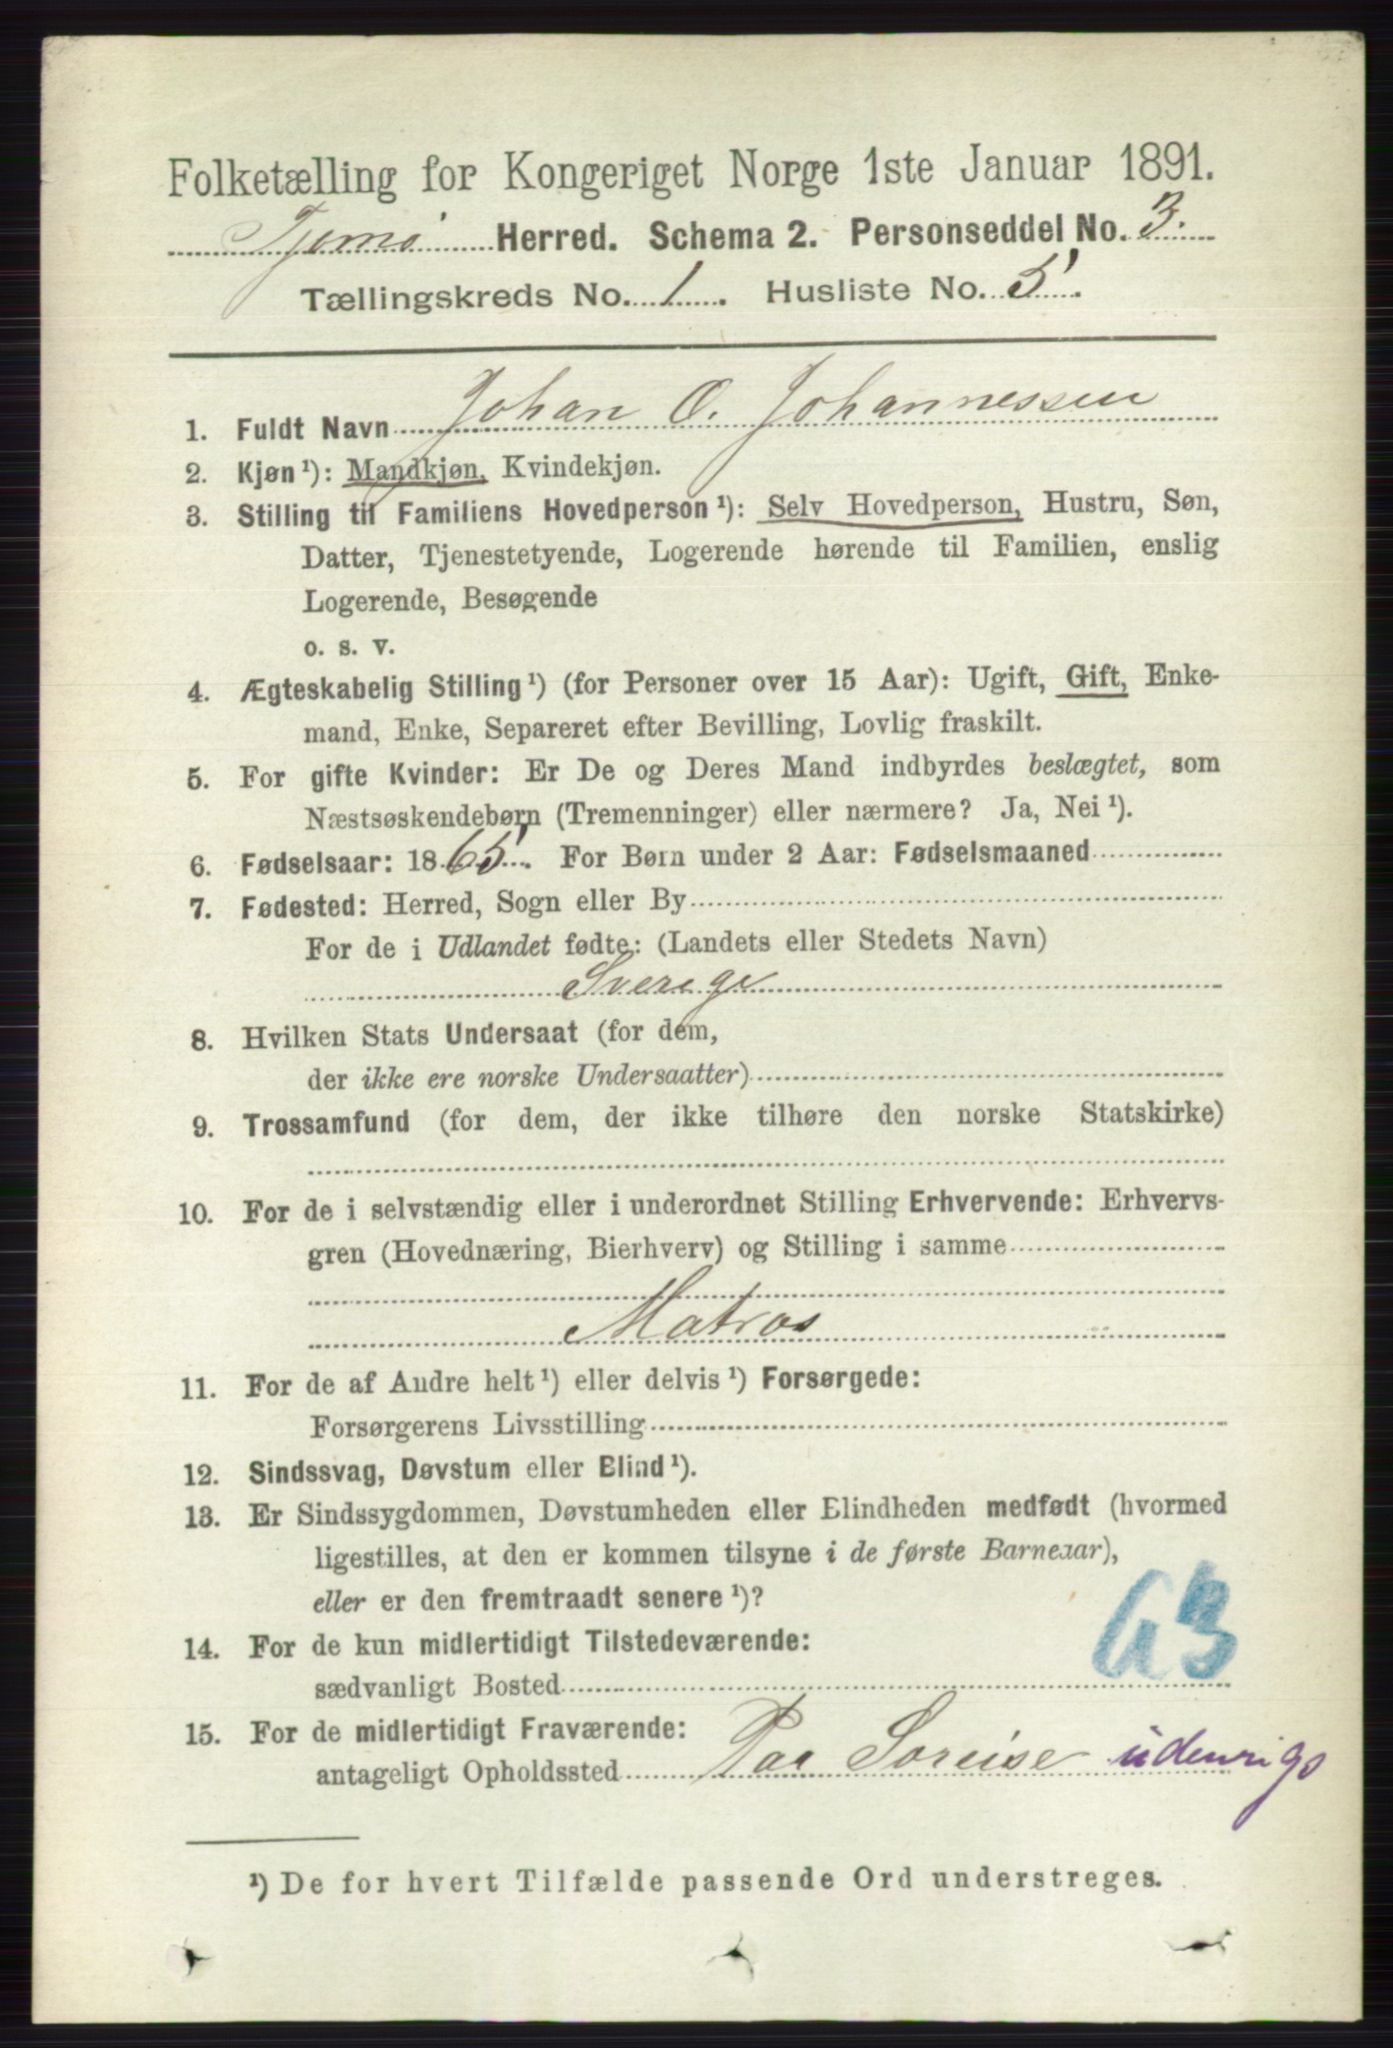 Folketælling for Kongeriget Norge 1ste Januar 1891.
Tjømø Herred. Schema 2. Personseddel No. 3.
Tællingskreds No. 1. Husliste No. 5.
1. Fuldt Navn Johan O. Johannessen
2. Kjøn¹): Mandkjøn, Kvindekjøn.
3. Stilling til Familiens Hovedperson¹): Selv Hovedperson, Hustru, Søn,
Datter, Tjenestetyende, Logerende hørende til Familien, enslig
Logerende, Besøgende
o. s. v.
4. Ægteskabelig Stilling¹) (for Personer over 15 Aar): Ugift, Gift, Enke-
mand, Enke, Separeret efter Bevilling, Lovlig fraskilt.
5. For gifte Kvinder: Er De og Deres Mand indbyrdes beslægtet, som
Næstsøskendebørn (Tremenninger) eller nærmere? Ja, Nei¹).
6. Fødselsaar: 1865. For Børn under 2 Aar: Fødselsmaaned
7. Fødested: Herred, Sogn eller By
For de i Udlandet fødte: (Landets eller Stedets Navn)
Sverige
8. Hvilken Stats Undersaat (for dem,
der ikke ere norske Undersaatter)
9. Trossamfund (for dem, der ikke tilhøre den norske Statskirke)
10. For de i selvstændig eller i underordnet Stilling Erhvervende: Erhvervs-
gren (Hovednæring, Bierhverv) og Stilling i samme
Matros
11. For de af Andre helt¹) eller delvis¹) Forsørgede:
Forsørgerens Livsstilling
12. Sindssvag, Døvstum eller Blind¹).
13. Er Sindssygdommen, Døvstumheden eller Blindheden medfødt (hvormed
ligestilles, at den er kommen tilsyne i de første Barneaar),
eller er den fremtraadt senere¹)?
14. For de kun midlertidigt Tilstedeværende:
sædvanligt Bosted
15. For de midlertidigt Fraværende:
antageligt Opholdssted Paa Soreise udenrigs
¹) De for hvert Tilfælde passende Ord understreges.